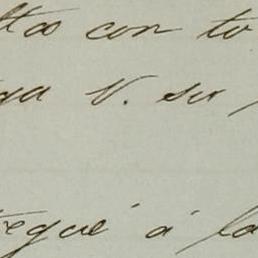 ltas con to
ga V. su
tregué á la